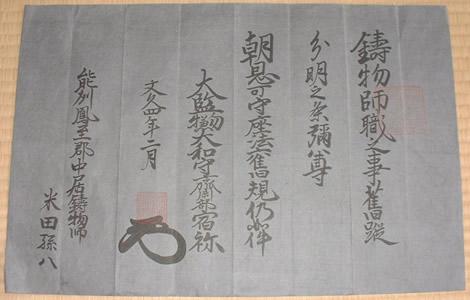 鋳物師職之事舊蹤
分明之条彌専
朝恩可守座法舊規仍如件
大監物大和守齋部宿祢
文久四年二月
能州鳳至郡中居鋳物師
米田孫八